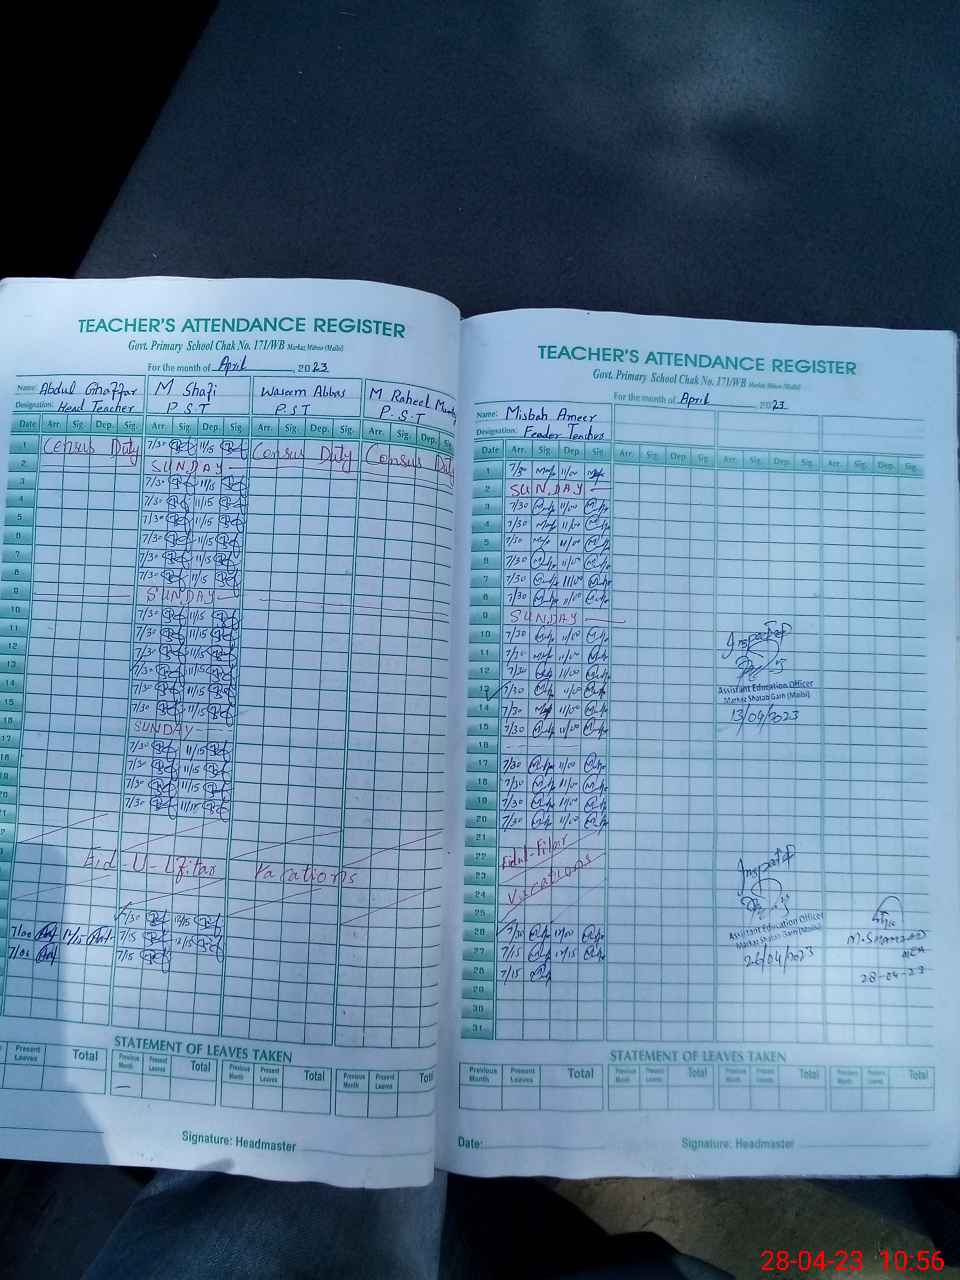 TEACHER'S ATTENDANCE REGISTER
Govt. Primary School Chak No. 171/WB Markaz Mitroo (Mailsi)
For the month of April, 2023
Name: Abdul Ghaffar M Shafi Waseem Abbas M Raheel
Designation: Head Teacher P.S.T P.S.T P.S.T
Date Arr. Sig. Dep. Sig. Arr. Sig. Dep. Sig. Arr. Sig. Dep. Sig. Arr. Sig. Dep. Sig.
1 Census Duty 7/30 11/15 Census Duty Census Duty
2 SUNDAY
3 7/30 11/15
4 7/30 11/15
5 7/30 11/15
6 7/30 11/15
7 7/30 11/15
8 7/30 11/15
9 SUNDAY
10 7/30 11/15
11 7/30 11/15
12 7/30 11/15
13 7/30 11/15
14 7/30 11/15
15 7/30 11/15
16 SUNDAY
17 7/30 11/15
18 7/30 11/15
19 7/30 11/15
20 7/30 11/15
Eid-U-Lfitar Vacations
7/30 12/15
7/00 12/15 7/15 12/15
7/00 7/15
STATEMENT OF LEAVES TAKEN
Present Leaves Total Previous Month Present Leaves Total Previous Month Present Leaves Total Previous Month Present Leaves Total
Signature: Headmaster
TEACHER'S ATTENDANCE REGISTER
Govt. Primary School Chak No. 171/WB Markaz Mitroo (Mailsi)
For the month of April, 2023
Name: Misbah Ameer
Designation: Feader Teacher
Date Arr. Sig. Dep. Sig. Arr. Sig. Dep. Sig. Arr. Sig. Dep. Sig. Arr. Sig. Dep. Sig.
1 7/30 11/00
2 SUNDAY
3 7/30 11/00
4 7/30 11/00
5 7/30 11/00
6 7/30 11/00
7 7/30 11/00
8 7/30 11/00
9 SUNDAY
10 7/30 11/00
11 7/30 11/00
12 7/30 11/00
13 7/30 11/00
14 7/30 11/00
15 7/30 11/00
16
17 7/30 11/00
18 7/30 11/00
19 7/30 11/00
20 7/30 11/00
21
22 Eidul-Fitar
23
24 Vacations
25
26 7/30 12/00
27 7/15 12/15
28 7/15
29
30
31
Inspected
Assistant Education Officer
Markaz Shatab Garh (Mailsi)
13/04/2023
Inspected
Assistant Education Officer
Markaz Shatab Garh (Mailsi)
26/04/2023
MEA
28-04-23
STATEMENT OF LEAVES TAKEN
Previous Month Present Leaves Total Previous Month Present Leaves Total Previous Month Present Leaves Total Previous Month Present Leaves Total
Date: Signature: Headmaster
28-04-23 10:56